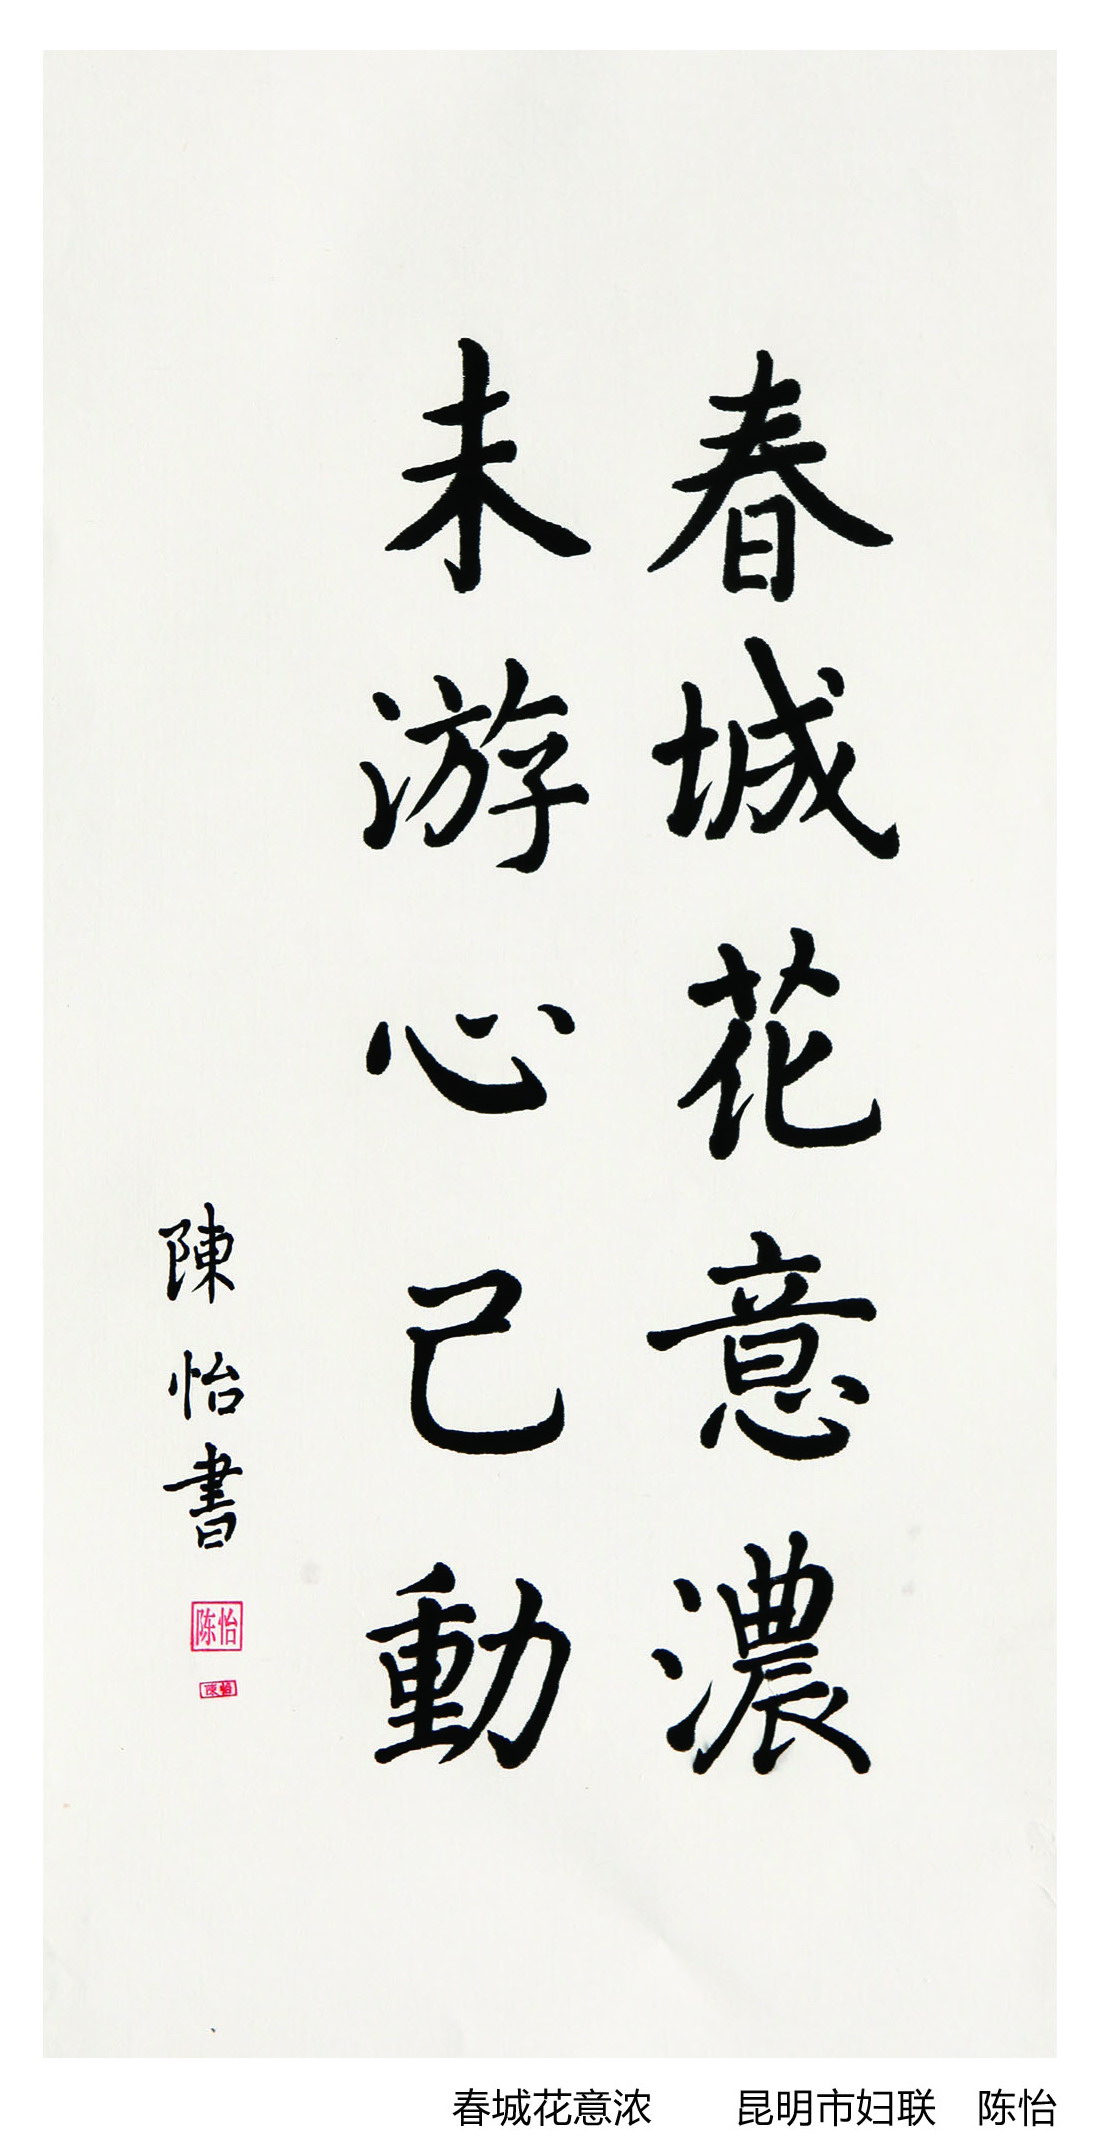 春城花意濃
未游心已動
陳怡書
陈怡
春城花意浓 昆明市妇联 陈怡